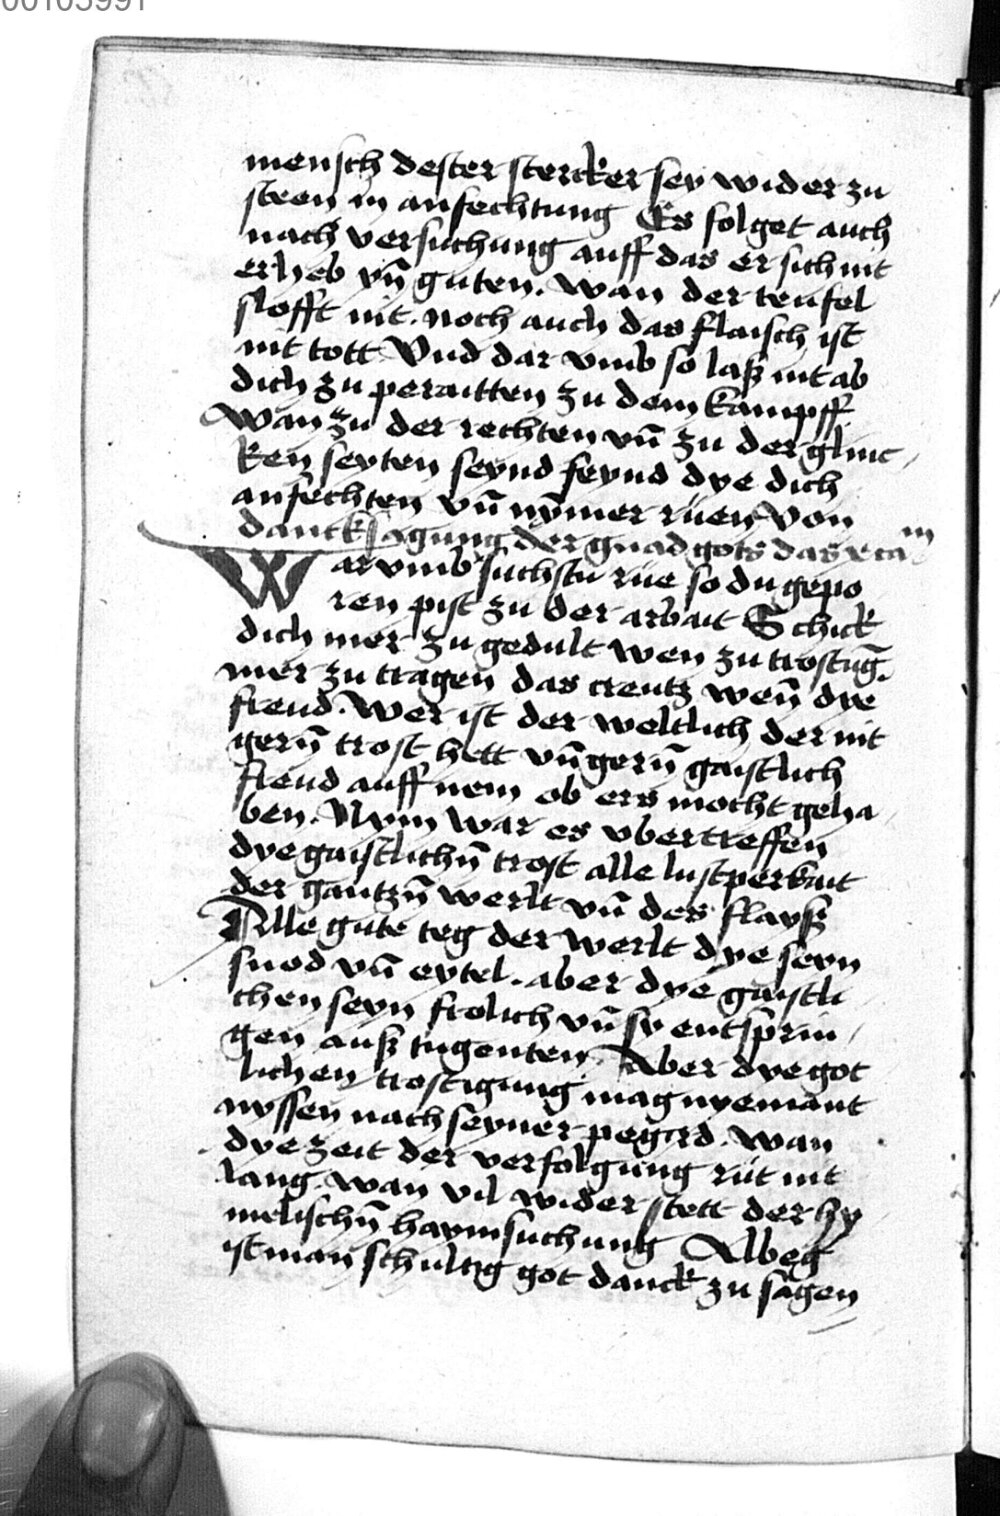 00103991
mensch dester stercker sey wider zu
steen in anfechtung Es folget auch
nach versuchung auff das er sich nit
erheb yn̄ guten. wan der teufel
slofft nit. noch auch das flaisch ist
nit tott Vnd dar vmb so laß nit ab
dich zu peraitten zu dem kampff
wan zu der rechten vn̄ zu der glinc
ken seyten seynd feynd dye dich
anfechten vn̄ nȳmer rüen Von
dancksagung der gnad gots das
Warvmb suchstu rüe so du gepo
ren pist zu der arbait Schick
dich mer zu gedult wen zu trostuḡ.
mer zu tragen das creutz wen̄ dye
freud. Wer ist der weltlich der nit
gern̄ trost hett vn̄ gern̄ gaistlich
freud auff nem ob ers mocht geha
ben. Nym war es vbertreffen
dye gaistlichn̄ trost alle lustperkait
der gantzn̄ werlt vn̄ des flayß
Alle gute teg der werlt dye seyn
snod vn̄ eytel. aber dye gaistli
chen seyn frolich vn̄ sy entsprin
gen auß tugenten. Aber dye got
lichen trostigung mag nyemant
nyssen nach seyner pegird. wan
dye zeit der verfolgung rüt nit
lang. wan vil wider stett der hy
melischn̄ haymsuchung Albeg
ist man schultig got danck zu sagen